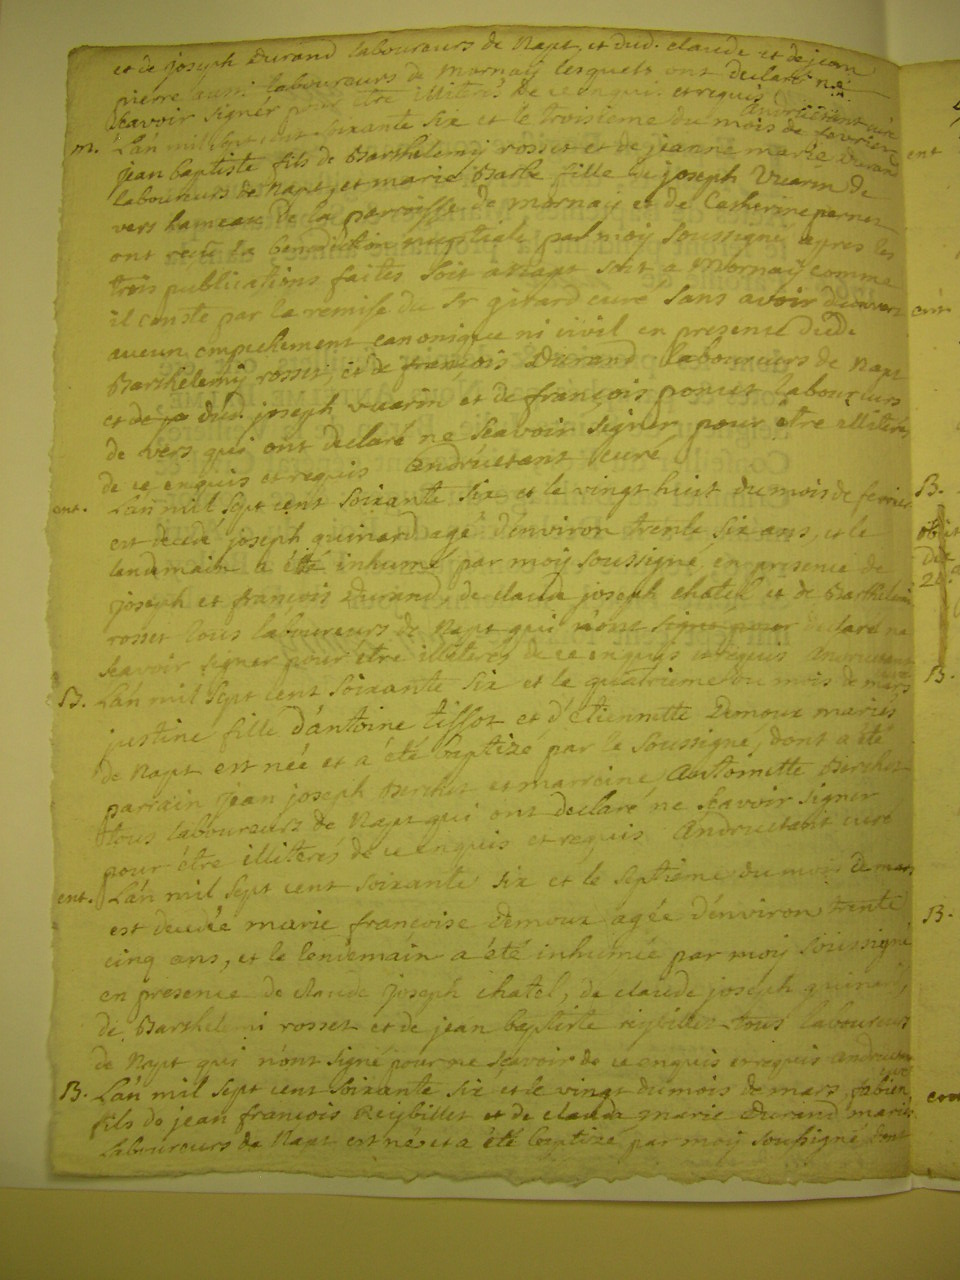 et de joseph Durand laboureurs de Napt, et dud. claude et de jean
pierre aussi laboureurs de Mornay lesquels ont declaré ne
scavoir signer pour être illiterés de ce enquis et requis Andruetant curé
m. L'an mil sept cent soixante six et le troisieme du mois de fevrier
jean baptiste fils de Barthelemi rosset et de jeanne marie Durand
laboureurs de Napt, et marie Barbe fille de joseph Vuarin de
vers hameau de la parroisse de mornay et de Catherine pernet
ont recu la benediction nuptiale par moy soussigné apres les
trois publications faites soit a Napt soit a Mornay comme
il conste par la remise du Sr girard curé sans avoir decouvert
aucun empechement canonique ni civil en presence dud.
Barthelemy rosset et de françois Durand laboureurs de Napt
et de dud. joseph vuarin et de françois ponut laboureurs
de vers qui ont declaré ne scavoir signer pour etre illiterés
de ce enquis et requis Andruetant curé
ent. L'an mil sept cent soixante six et le vingt huit du mois de fevrier
est decedé joseph quinard agé d'environ trente six ans, et le
lendemain a été inhumé par moy soussigné en presence de
joseph et françois Durand, de claude joseph chatel et de Barthelemi
rosset tous laboureurs de Napt qui declaré ne
scavoir signer pour etre illiterés de ce enquis et requis Andruetant
B. L'an mil sept cent soixante six et le quatrieme du mois de mars
justine fille d'antoine tissot et d'etiennette Demoux mariés
de Napt est née et a été baptizé par le soussigné, dont a été
parrain jean joseph Berchet et marraine Antoinette Berchet
tous laboureurs de Napt qui ont declaré ne scavoir signer
pour être illiterés de ce enquis et requis Andruetant curé
ent. L'an mil sept cent soixante six et le septieme du mois de mars
est decedée marie françoise Demoux agée d'environ trente
cinq ans, et le lendemain a été inhumée par moy soussigné
en presence de claude joseph chatel, de claude joseph quinard,
de Barthelemi rosset et de jean baptiste reybillet tous laboureurs
de Napt qui n'ont signé pour ne scavoir de ce enquis et requis Andruetant
B. L'an mil sept cent soixante six et le vingt du mois de mars fabien
fils de jean françois Reybillet et de claude marie Durand mariés
laboureurs de Napt est né et a été baptizé par moy soussigné dont